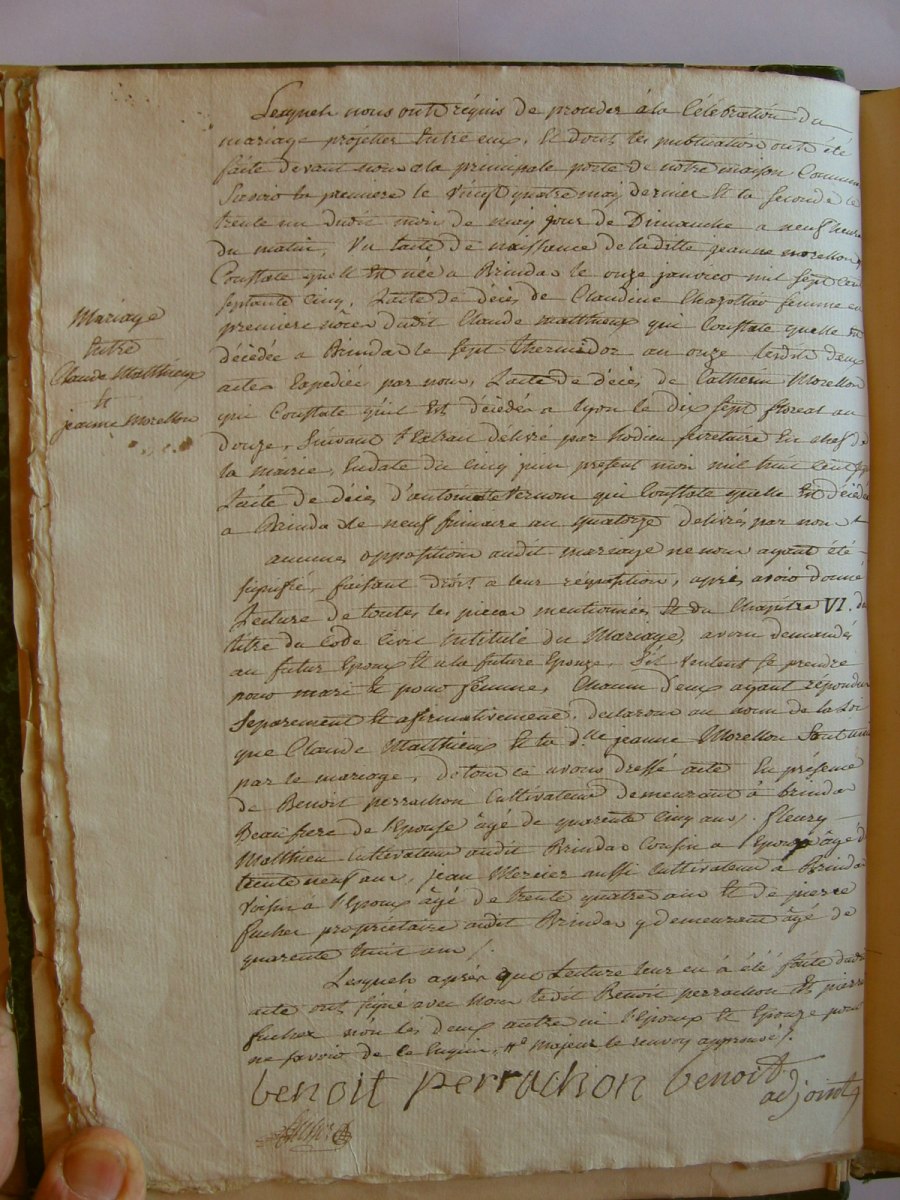 Lesquels nous ont réquis de proceder à la Célébration du
mariage projettée entre eux, Et dont les publication ont été
faite devant nous a la principale porte de notre maison Commune
Scavoir la premiere le vingt quatre may dernier Et la seconde le
trente un dudit mois de may jour de Dimanche a neuf heure
du matin, Vu l'acte de naissance de la ditte jeanne morellon
Constate quelle Est née a Brindas le onze janvier mil sept cen
septante cinq, L'acte de décès de Claudine femme en
premiere nôces dudit Claude Matthieux qui Constate quelle est
décédée a Brindas le sept thermidor an onze lesdits deux
actes Expediée par nous, L'acte de décès de Catherin Morellon
qui Constate qu'il Est décédé a lyon le dix sept floreal an
douze, suivant l'Extrait délivré par hodieu secretaire En chef de
la mairie, En date du cinq juin present mois mil huit cent
L'acte de décès d'antoinette Vernom qui Constate quelle Est décédée
a Brindas le neuf frimaire an quatorze delivrés par nous
aucunes opposition audit mariage ne nous ayant été
signifié, faisant droit a leur réquisition, après avoir donné
Lecture de toutes les pieces mentionnées Et du Chapitre VI. du
titre du Code Civil intitulé du Mariage, avons demandés
au futur Epoux Et a la future Epouze, s'il veulent se prendre
pour mari Et pour femme, Chacun d'eux ayant répondu
Séparement Et affirmativement, declarons au nom de la Loi
que Claude Matthieux Et la d.lle jeanne Morellon sont unis
par le mariage, de tout ce avons dressé acte En présence
de Benoit perrachon Cultivateur demeurant à Brindas
Beau frere de l'Epouse âgé de quarente cinq ans, fleury
Matthieu Cultivateur audit Brindas Cousin a l'Epoux âgé de
trente neuf ans, jean Mercier aussi Cultivateur à Brindas
voisin à l'Epoux âgé de trente quatre ans Et de pierre
fucher propriétaire audit Brindas y demeurant âgé de
quarente huit ans /.
Lesquels après que Lecture leur en à été faite dudit
acte ont signé avec nous ledit Benoit perrachon Et pierre
fucher non les deux autre ni l'Epoux Et Epouze pour
ne savoir de ce Enquis, majeur le renvoy approuvé /.
benoit perrachon benoit
adjoint
Mariage
Entre
Claude Matthieux
et
jeanne Morellon